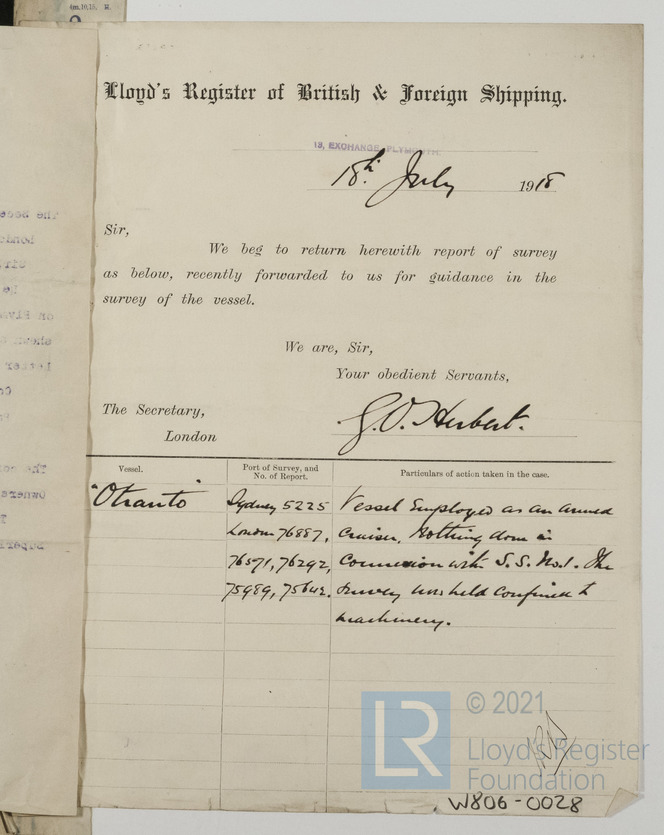 Lloyd's Register of British & Foreign Shipping.
13, EXCHANGE, PLYMOUTH.
18th July 1918
Sir,
We beg to return herewith report of survey
as below, recently forwarded to us for guidance in the
survey of the vessel.
We are, Sir,
Your obedient Servants,
The Secretary,
London
G.O. Herbert.
Vessel.
Port of Survey, and
No. of Report.
Particulars of action taken in the case.
"Otranto"
Sydney 5225
London 76887,
76571, 76292,
75989, 75642.
Vessel employed as an armed
cruiser. Nothing done in
connexion with S.S. No.1. The
survey now held confined to
machinery.
LR
© 2021
Lloyd's Register
Foundation
W806-0028